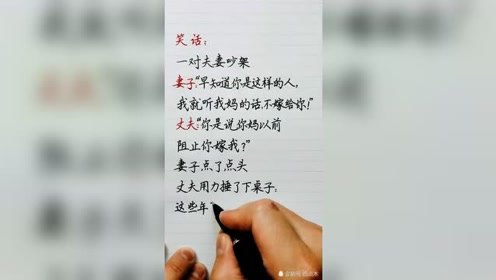 笑话:
一对夫妻吵架
妻子:“早知道你是这样的人,
我就听我妈的话,不嫁给你!”
丈夫:“你是说你妈以前
阻止你嫁我?”
妻子点了点头
丈夫用力捶了下桌子:
这些年